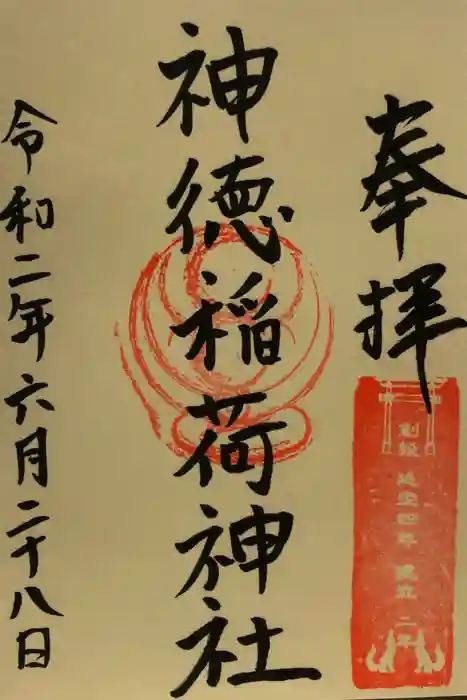 奉拝
創祀 延宝四年 建立 二年
神徳稲荷神社
令和二年六月二十八日